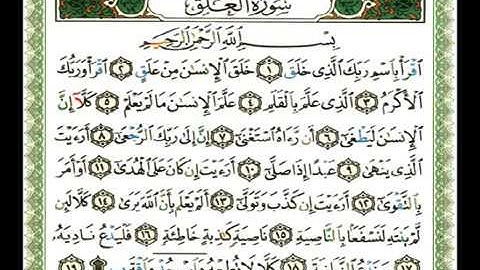 سُورَةُ الْعَلَقِ
بِسْمِ اللَّهِ الرَّحْمَٰنِ الرَّحِيمِ
اقْرَأْ بِاسْمِ رَبِّكَ الَّذِي خَلَقَ ١ خَلَقَ الْإِنسَانَ مِنْ عَلَقٍ ٢ اقْرَأْ وَرَبُّكَ
الْأَكْرَمُ ٣ الَّذِي عَلَّمَ بِالْقَلَمِ ٤ عَلَّمَ الْإِنسَانَ مَا لَمْ يَعْلَمْ ٥ كَلَّا إِنَّ
الْإِنسَانَ لَيَطْغَىٰ ٦ أَن رَّآهُ اسْتَغْنَىٰ ٧ إِنَّ إِلَىٰ رَبِّكَ الرُّجْعَىٰ ٨ أَرَأَيْتَ
الَّذِي يَنْهَىٰ ٩ عَبْدًا إِذَا صَلَّىٰ ١٠ أَرَأَيْتَ إِن كَانَ عَلَى الْهُدَىٰ ١١ أَوْ أَمَرَ
بِالتَّقْوَىٰ ١٢ أَرَأَيْتَ إِن كَذَّبَ وَتَوَلَّىٰ ١٣ أَلَمْ يَعْلَم بِأَنَّ اللَّهَ يَرَىٰ ١٤ كَلَّا لَئِن
لَّمْ يَنتَهِ لَنَسْفَعًا بِالنَّاصِيَةِ ١٥ نَاصِيَةٍ كَاذِبَةٍ خَاطِئَةٍ ١٦ فَلْيَدْعُ نَادِيَهُ
١٧ سَنَدْعُ الزَّبَانِيَةَ ١٨ كَلَّا لَا تُطِعْهُ وَاسْجُدْ وَاقْتَرِب ۩ ١٩